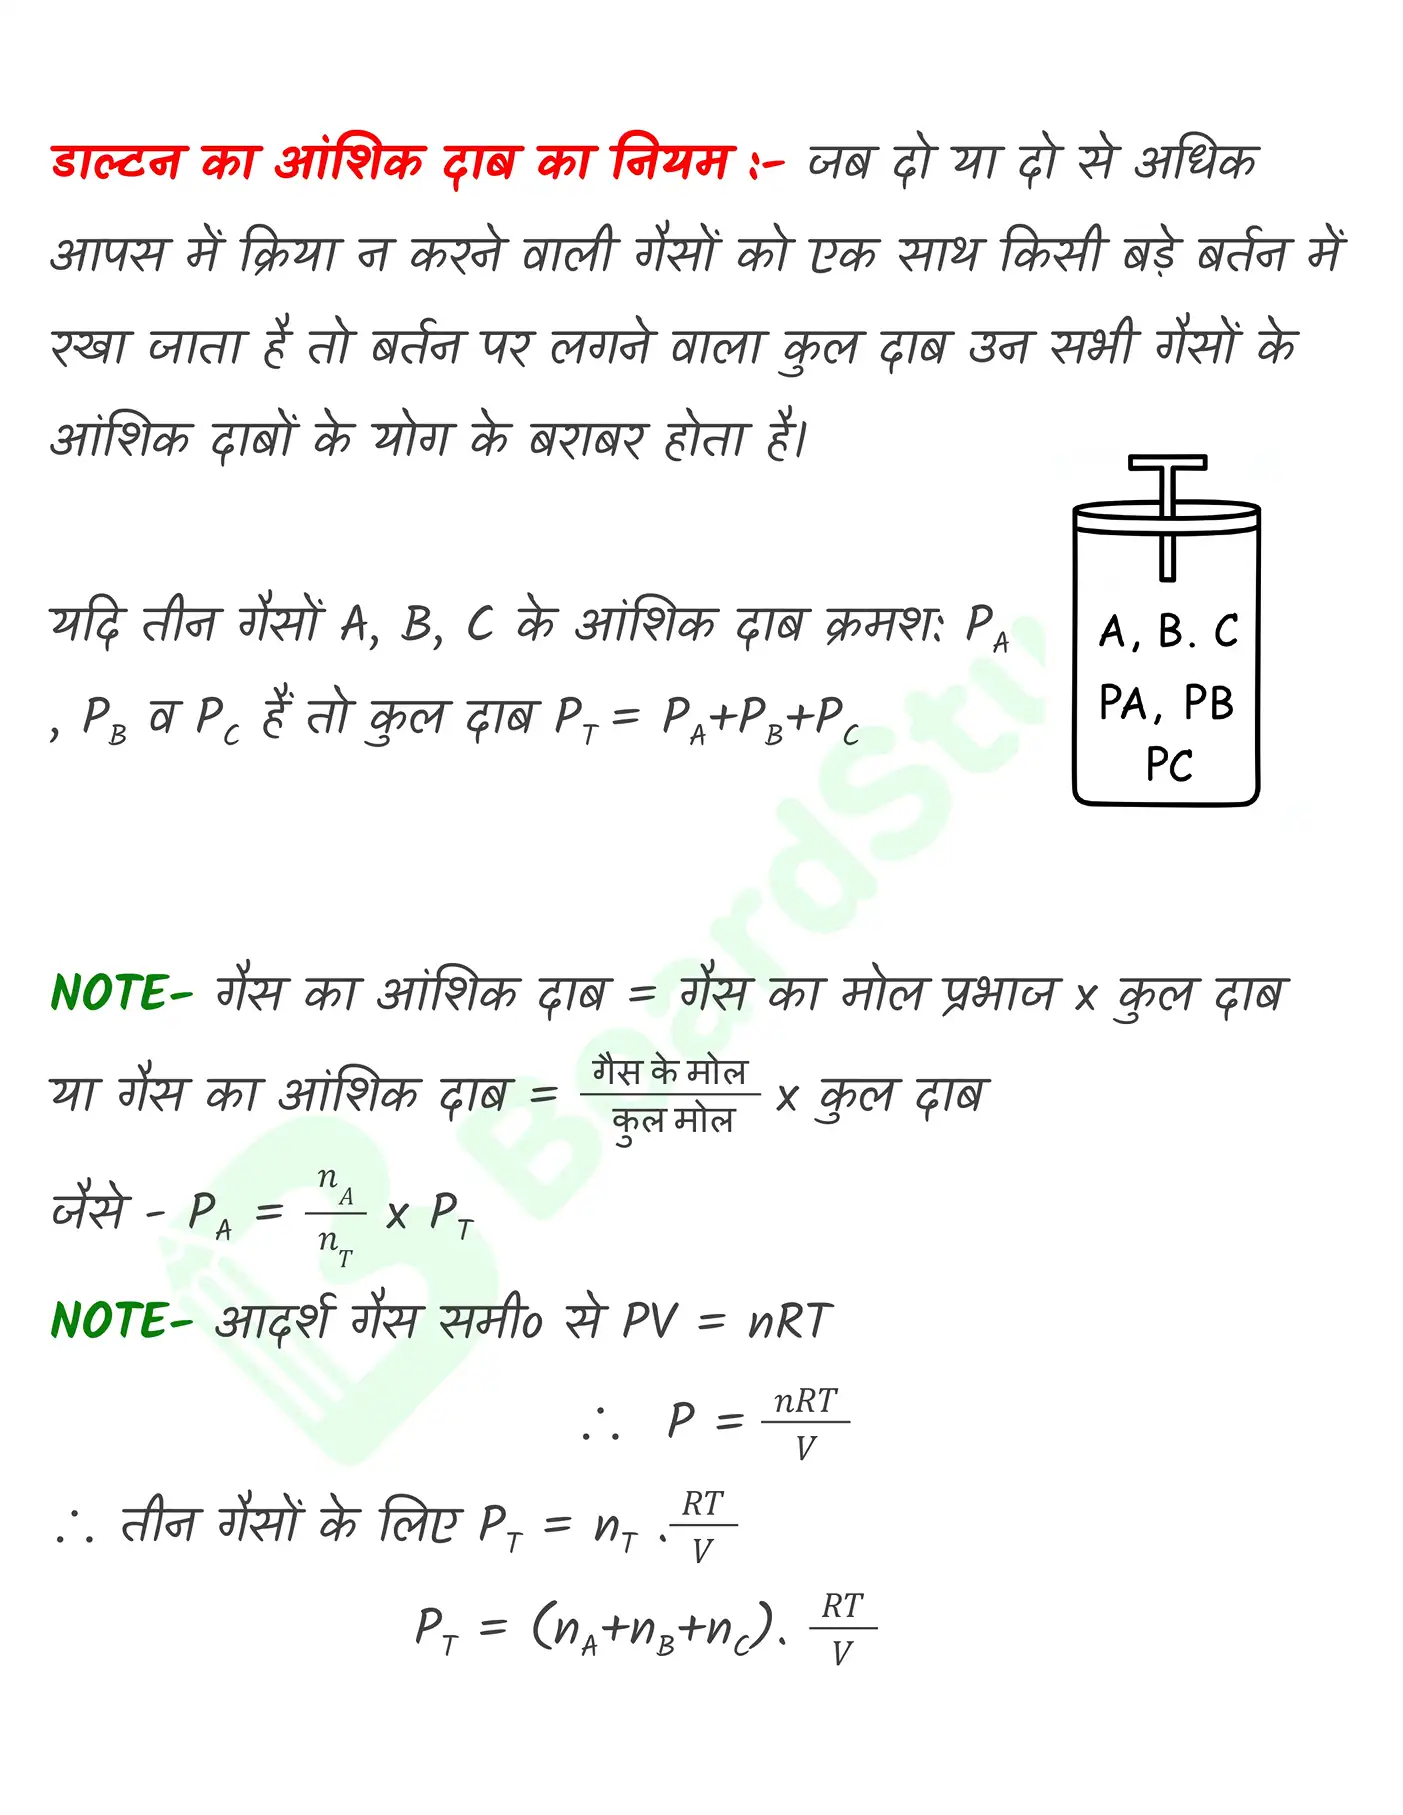 डाल्टन का आंशिक दाब का नियम :- जब दो या दो से अधिक
आपस में क्रिया न करने वाली गैसों को एक साथ किसी बड़े बर्तन में
रखा जाता है तो बर्तन पर लगने वाला कुल दाब उन सभी गैसों के
आंशिक दाबों के योग के बराबर होता है।
यदि तीन गैसों A, B, C के आंशिक दाब क्रमश: P_A
, P_B व P_C हैं तो कुल दाब P_T = P_A+P_B+P_C
A, B. C
PA, PB
PC
NOTE- गैस का आंशिक दाब = गैस का मोल प्रभाज x कुल दाब
या गैस का आंशिक दाब = गैस के मोल/कुल मोल x कुल दाब
जैसे - P_A = n_A/n_T x P_T
NOTE- आदर्श गैस समी० से PV = nRT
∴ P = nRT/V
∴ तीन गैसों के लिए P_T = n_T .RT/V
P_T = (n_A+n_B+n_C). RT/V